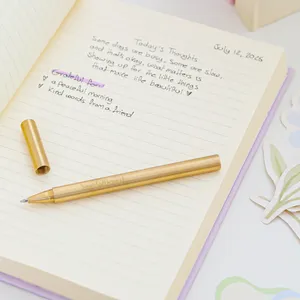 Today's Thoughts
July 12, 2025
Some days are busy, some are slow,
and that's okay. What matters is
showing up for the little things
that make life beautiful ♥
Grateful for:
♥ a peaceful morning
♥ kind words from a friend